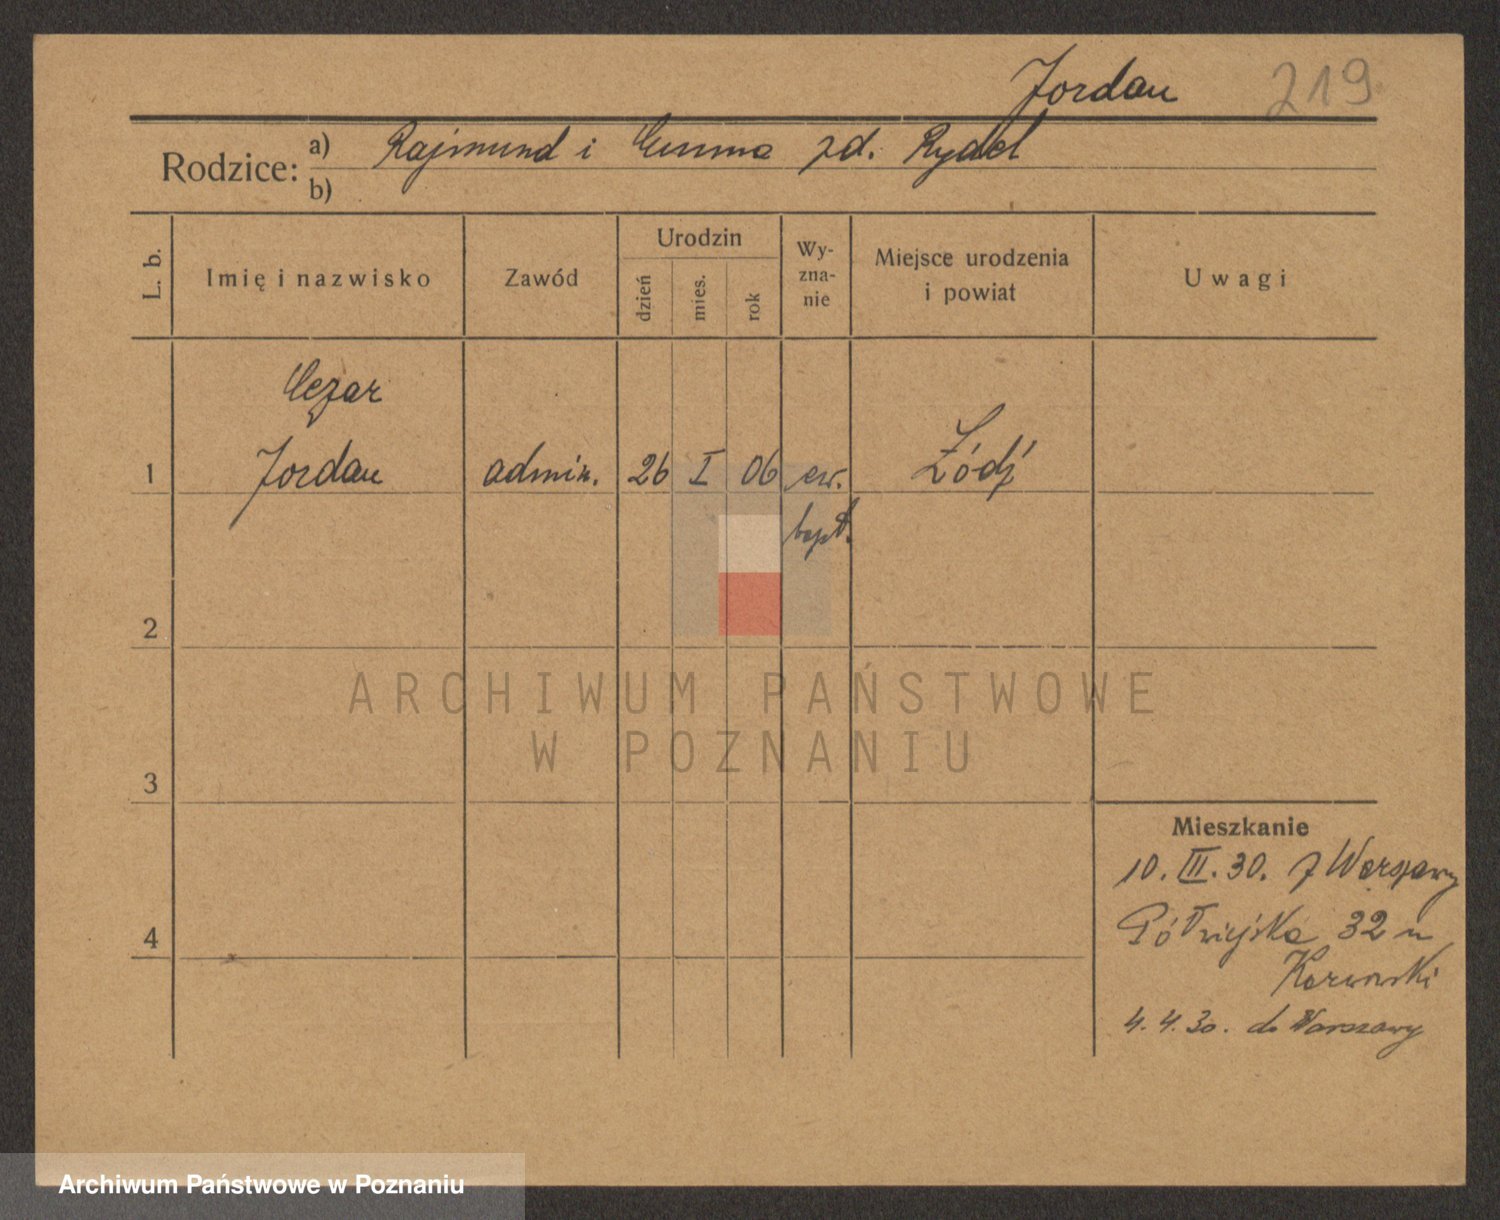 Jordan 219
Rodzice: a) Rajmund i Emma zd. Rydel
b)
L. b. Imię i nazwisko Zawód Urodzin dzień mies. rok Wy-zna-nie Miejsce urodzenia i powiat Uwagi
Cezar
1 Jordan admin. 26 I 06 ew. Łódź
bapt.
2
ARCHIWUM PAŃSTWOWE
W POZNANIU
3
Mieszkanie
10. III. 30. z Warszawy
4 Półwiejska 32 u
Karwowski
4. 4. 30. do Warszawy
Archiwum Państwowe w Poznaniu